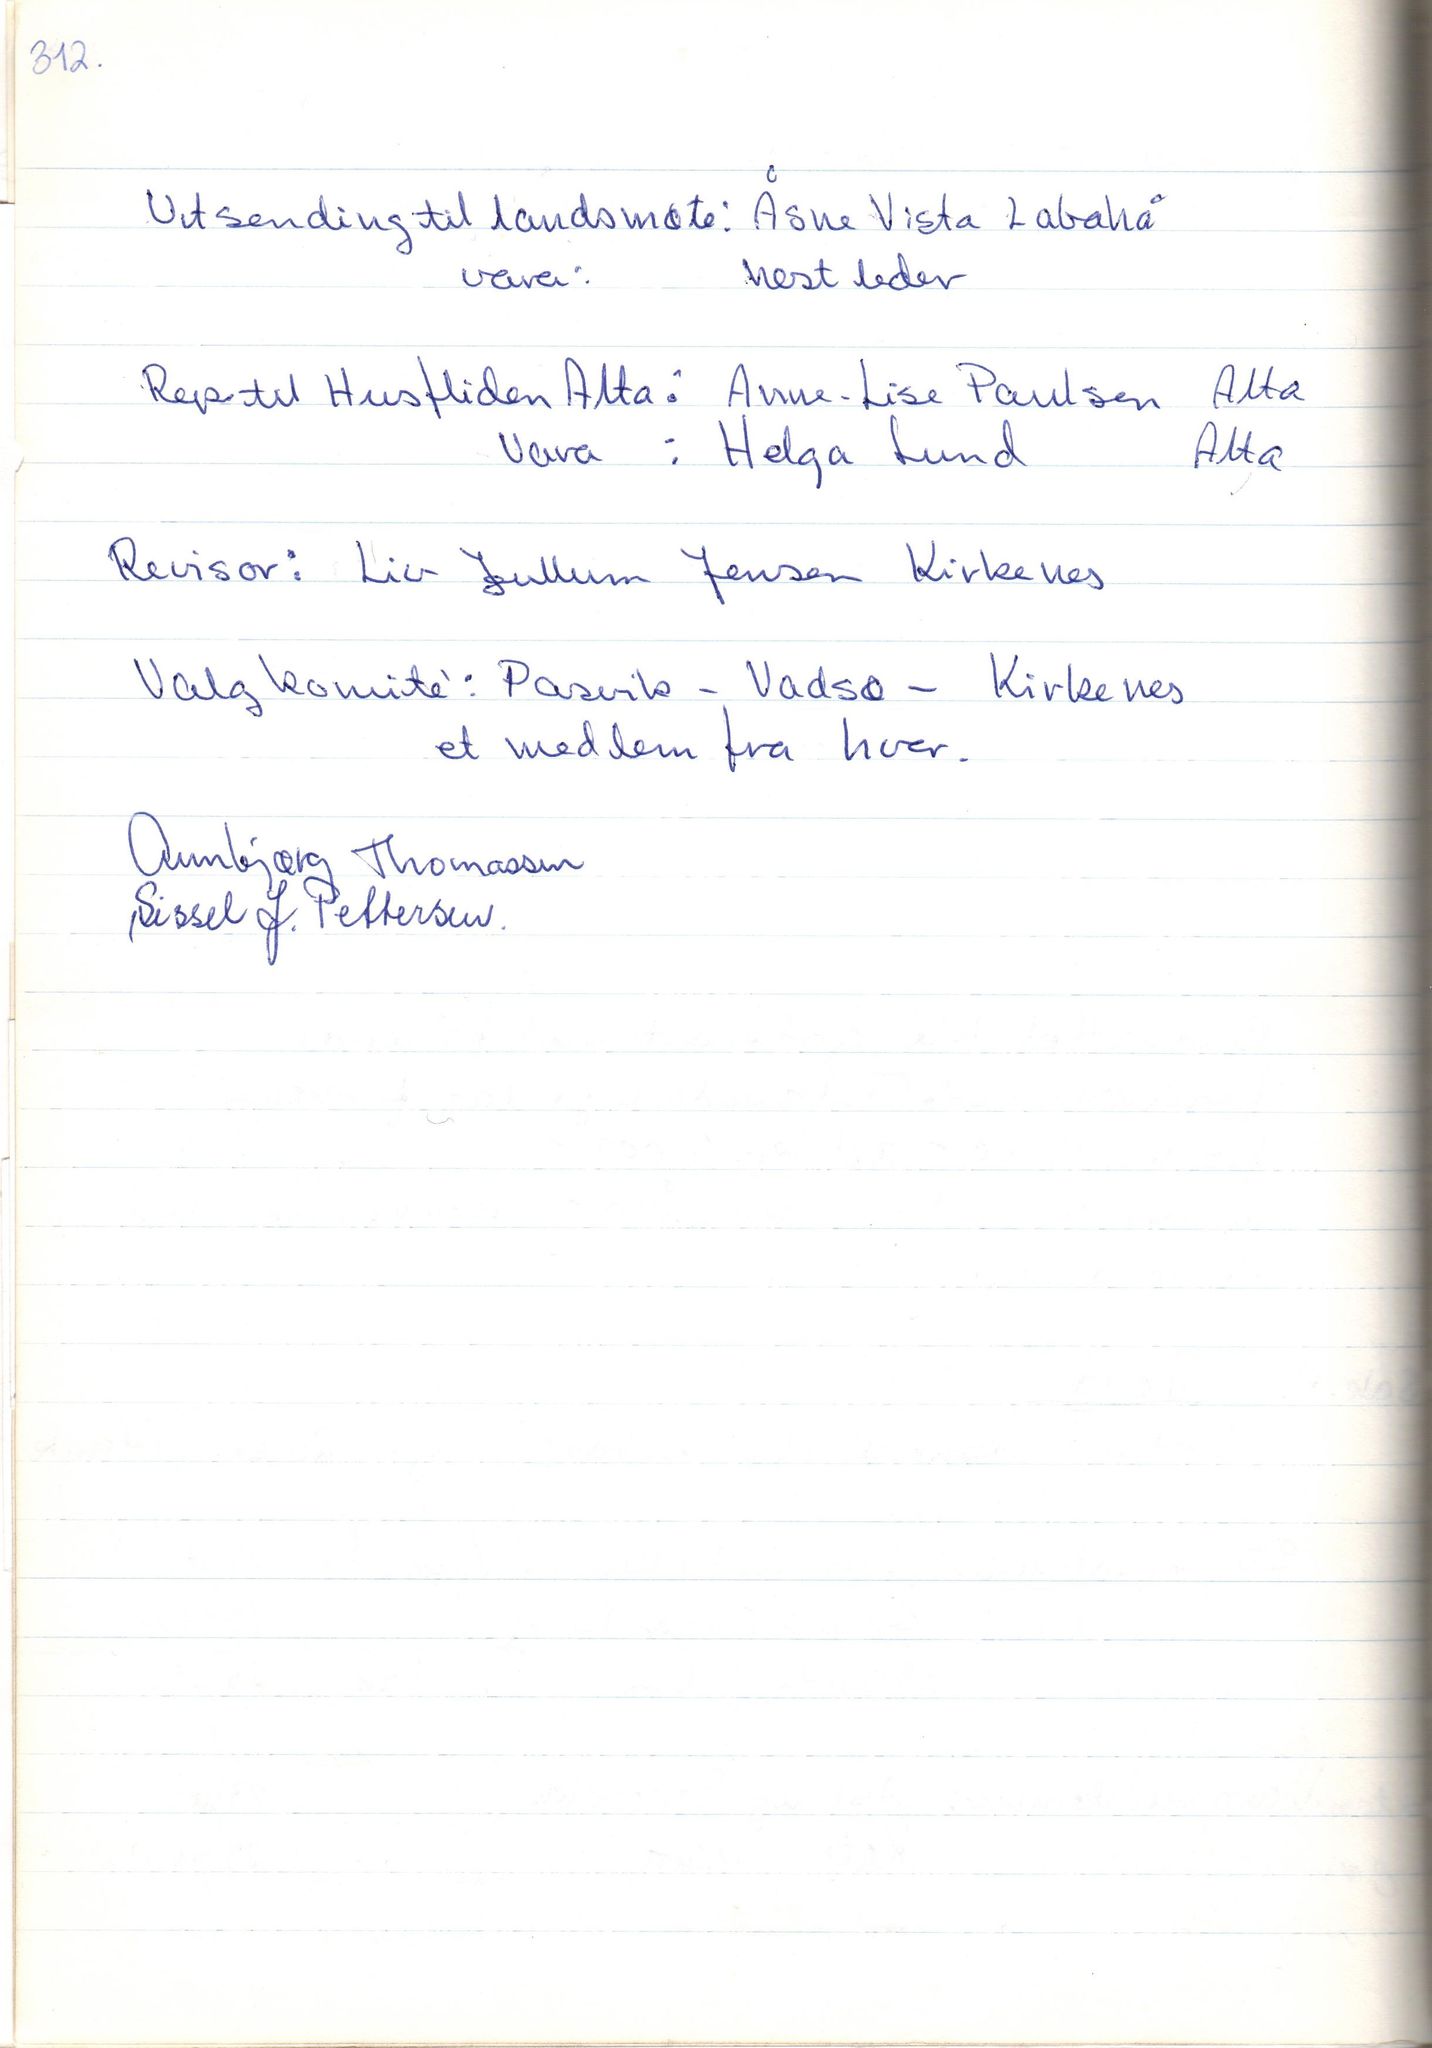 312.
Utsending til landsmøte: Åsne Vista Labahå
vara: nestleder
Rep til Husfliden Alta: Anne-Lise Paulsen Alta
Vara : Helga Lund Alta
Revisor: Liv Jullum Jensen Kirkenes
Valgkomité: Pasvik - Vadsø - Kirkenes
et medlem fra hver.
Annbjørg Thomassen
Sissel J. Pettersen.